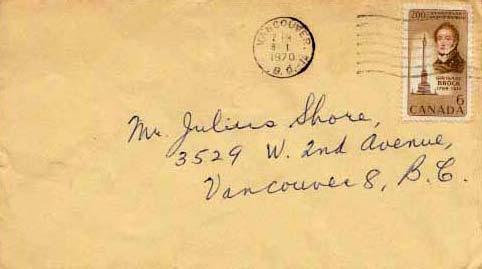 VANCOUVER
PM
1970
B.C.
200
SIR ISAAC
BROCK
1769-1812
6
CANADA
Mr. Julius Shore,
3529 W. 2nd Avenue,
Vancouver 8, B.C.